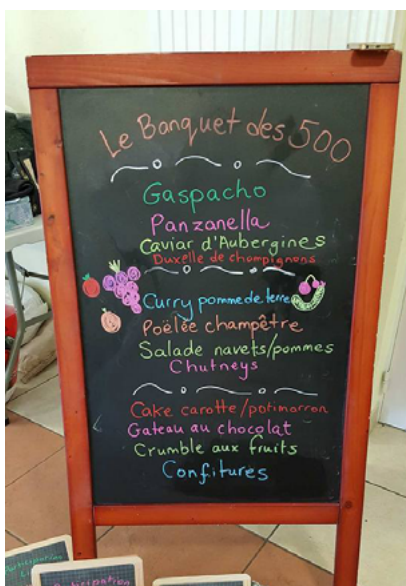 Le Banquet des 500
Gaspacho
Panzanella
Caviar d'Aubergines
Duxelle de champignons
Curry pomme de terre
Poëlée champêtre
Salade navets/pommes
Chutneys
Cake carotte/potimarron
Gateau au chocolat
Crumble aux fruits
Confitures
Participation
Participation